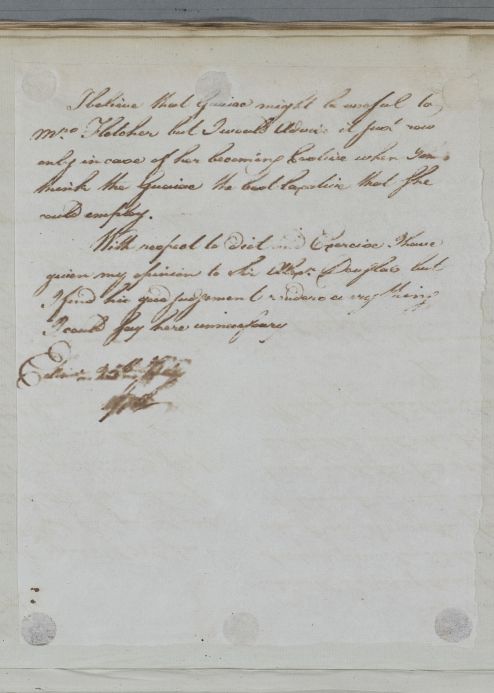 I believe that Guaiac might be useful to
Mrs. Fletcher but I would Advise it just now
only in case of her becoming Costive when I
think the Guaiac the best Laxative that She
could employ.
With respect to diet and Exercise I have
given my opinion to Mr Douglas but
I find his good judgement renders every thing
I could say here unnecessary